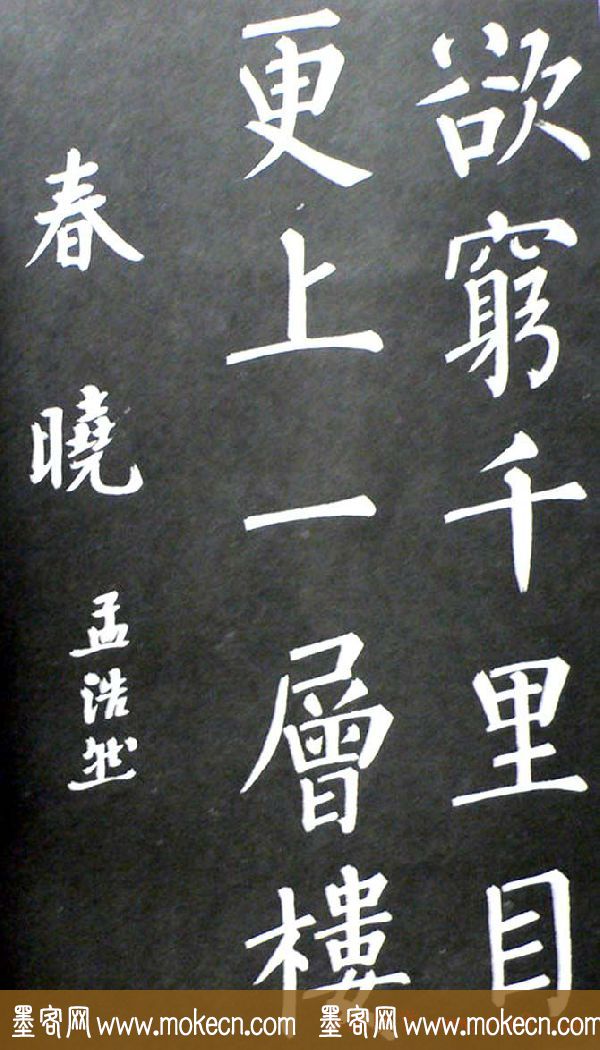 欲窮千里目
更上一層樓
春曉 孟浩然
墨客网 www.mokecn.com 墨客网 www.mokecn.com